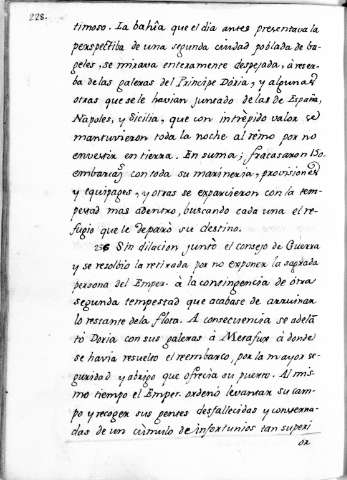 228.
timoso. La bahîa que el dia antes presentava la
perspectiba de una segunda ciudad poblada de ba-
geles, se mirava enteramente despejada, à reser-
ba de las galeras del Principe Dória, y algunas
otras que se le havian juntado de las de España,
Napoles, y Sicilia, que con intrèpido valor se
mantuvieron toda la noche al remo por no
envestir en tierra. En suma; fracasaron 150
embarcas. con toda su marineria, provisiones
y equipages, y otras se esparcieron con la tem-
pestad mas adentro, buscando cada una el re-
fugio que le deparò su destino.
236 Sin dilacion juntò el consejo de Guerra
y se resolbio la retirada por no exponer la sagrada
persona del Emper. à la contingencia de ótra
segunda tempestad que acabase de arruinar
lo restante de la flota. A consecuencia se adela
tò Doria con sus galeras à Metafux à donde
se havia resuelto el reembarco, por la mayor se-
guridad y abrigo que ofrecia su puerto. Al mis-
mo tiempo el Emper. ordenò levantar su cam-
po y recoger sus gentes desfallecidas y consterna-
das de un cùmulo de infortunios tan superi
or